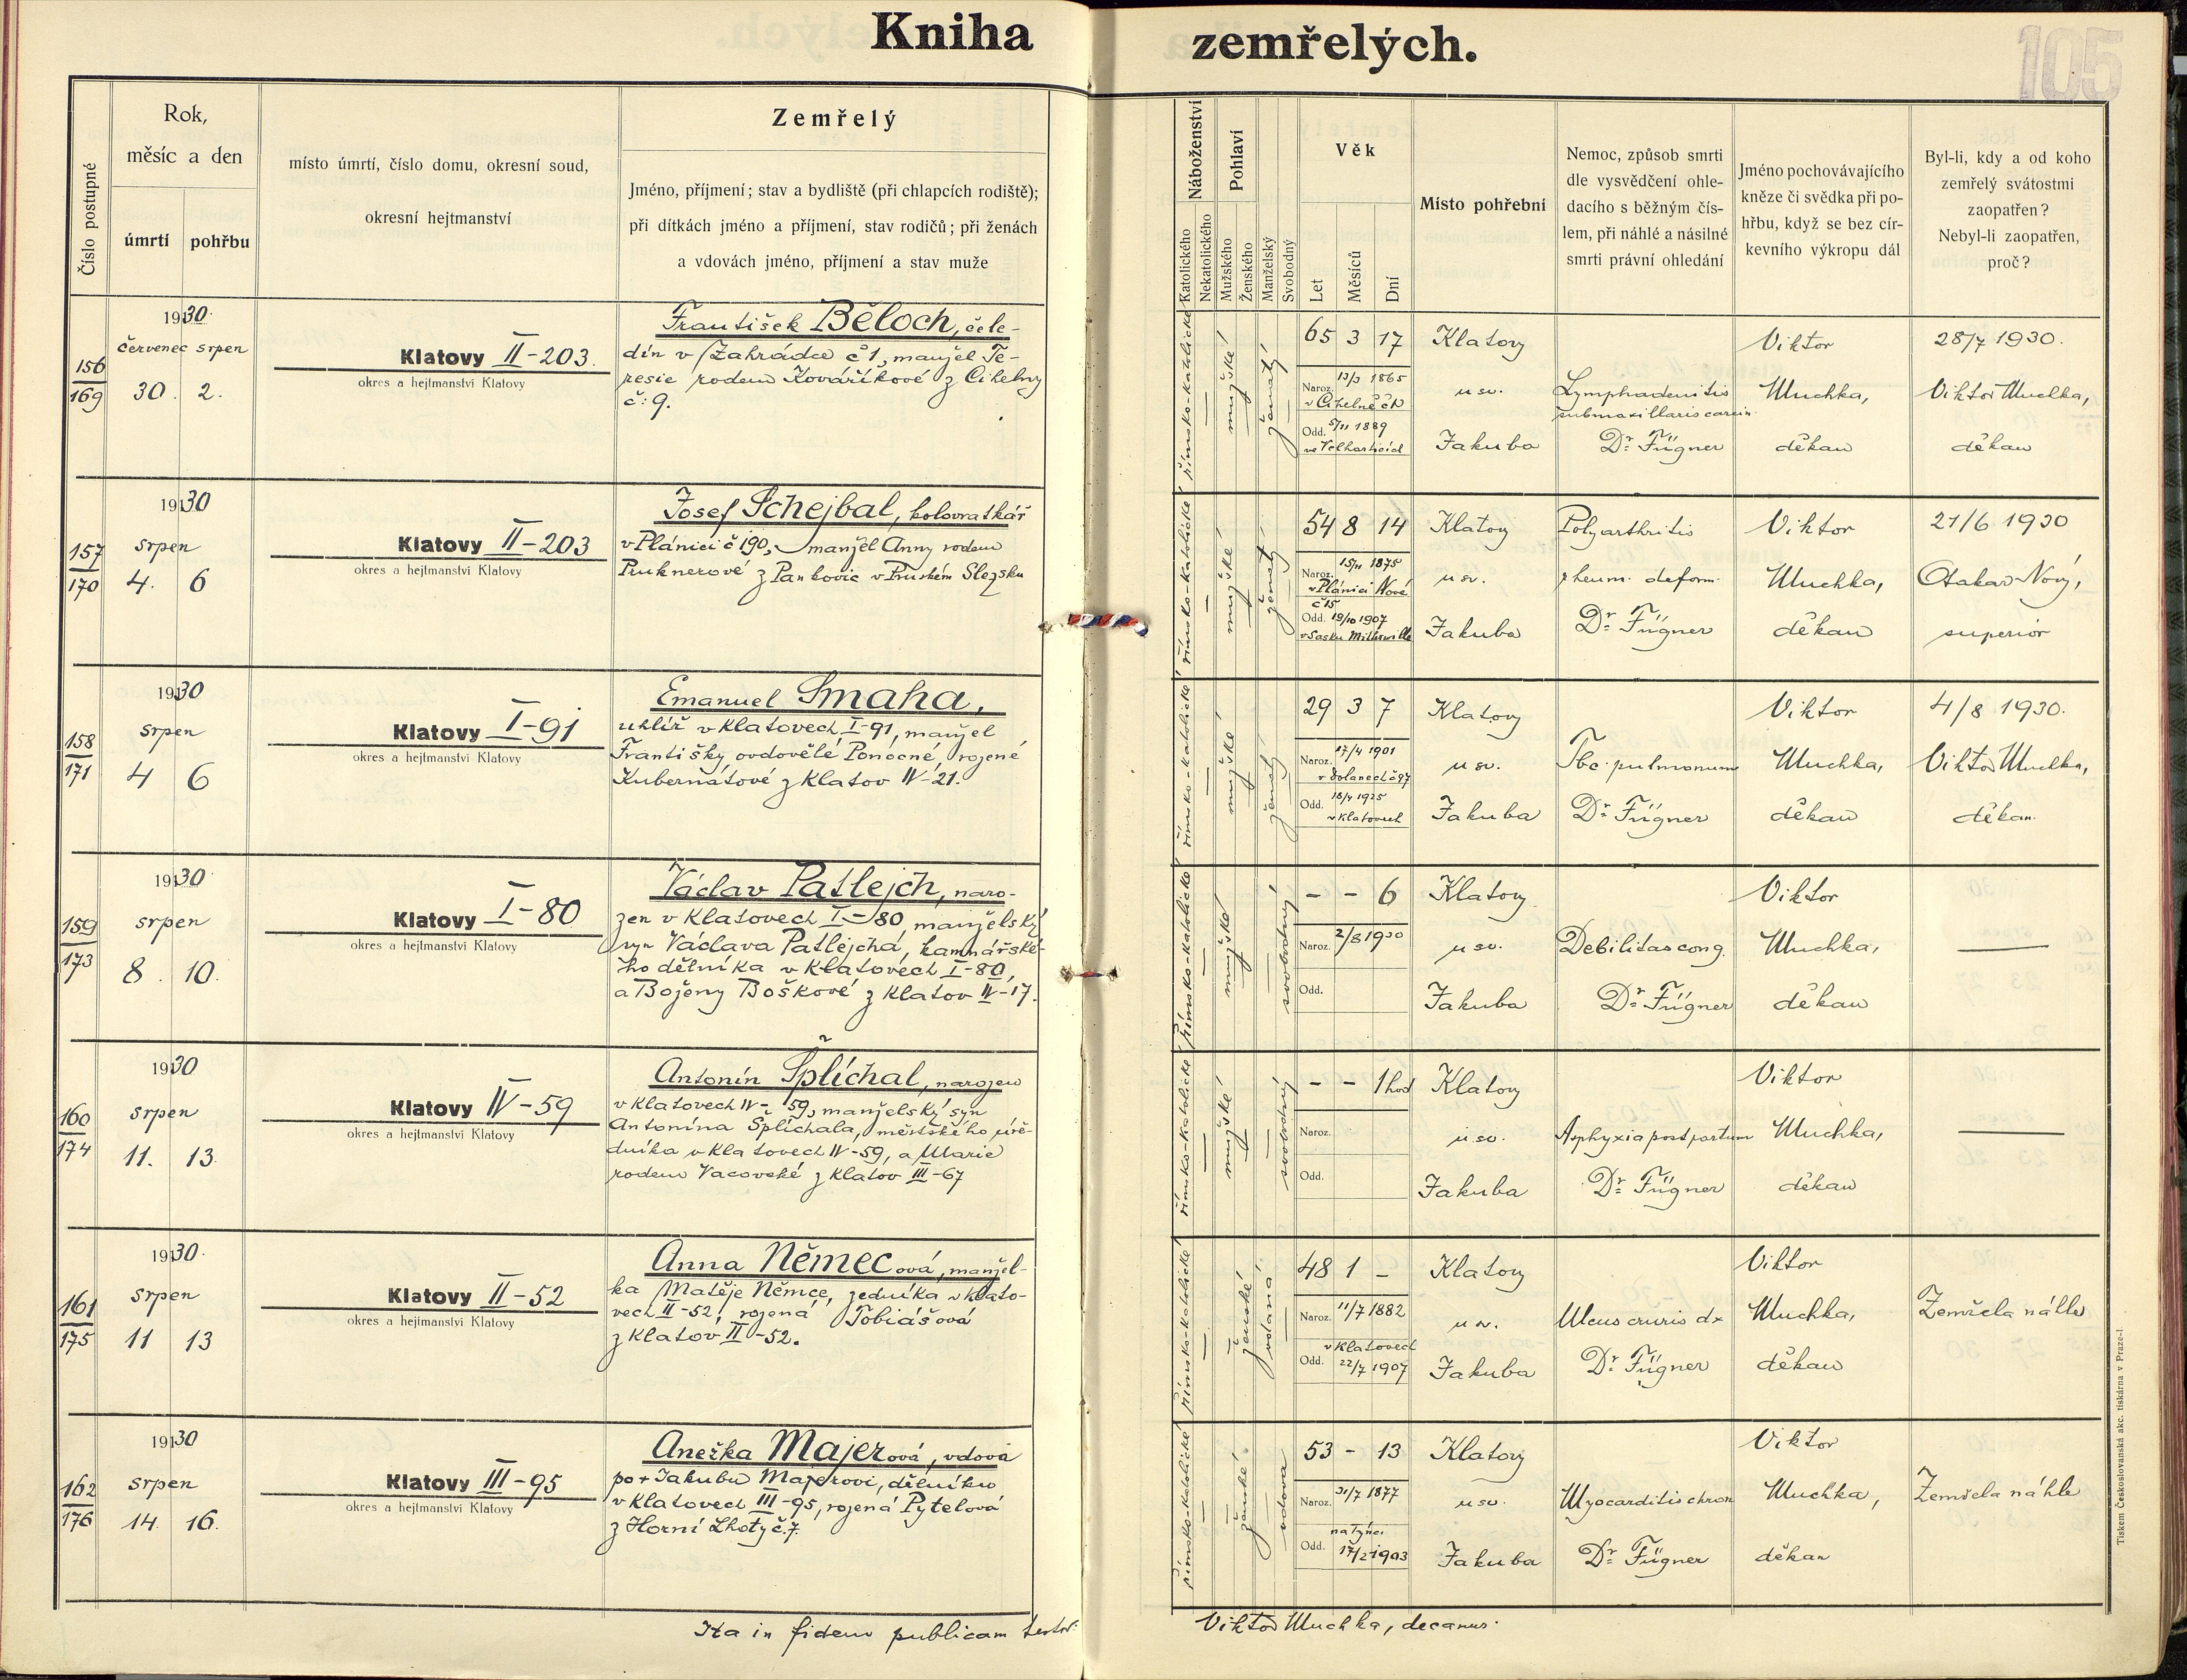 Kniha zemřelých.
105
Číslo postupné
Rok,
měsíc a den
úmrtí
pohřbu
místo úmrtí, číslo domu, okresní soud,
okresní hejtmanství
Zemřelý
Jméno, příjmení; stav a bydliště (při chlapcích rodiště);
při dítkách jméno a příjmení, stav rodičů; při ženách
a vdovách jméno, příjmení a stav muže
Náboženství
Katolického
Nekatolického
Pohlaví
Mužského
Ženského
Manželský
Svobodný
Věk
Let
Měsíců
Dní
Místo pohřební
Nemoc, způsob smrti
dle vysvědčení ohle-
dacího s běžným čís-
lem, při náhlé a násilné
smrti právní ohledání
Jméno pochovávajícího
kněze či svědka při po-
hřbu, když se bez cír-
kevního výkropu dál
Byl-li, kdy a od koho
zemřelý svátostmi
zaopatřen?
Nebyl-li zaopatřen,
proč?
156
169
1930.
červenec srpen
30. 2.
Klatovy II-203.
okres a hejtmanství Klatovy
František Běloch, čele-
dín v Zahrádce č 1, manžel Te-
resie rodem Kováříkové z Cihelny
č: 9.
římsko-katolické
mužské
ženatý
65 3 17
Naroz. 13/3 1865
v Cihelně
Odd. 5/11 1889
Klatovy
u sv.
Jakuba
Lymphadenitis
submaxillaris carcin.
Dr. Fügner
Viktor
Muchka,
děkan
28/7 1930.
Viktor Muchka,
děkan
157
170
1930
srpen
4. 6
Klatovy II-203
okres a hejtmanství Klatovy
Josef Schejbal, kolovratkář
v Plánici č 190, manžel Anny rodem
Pruknerové z Pankovic v Pruském Slezsku
římsko-katolické
mužské
ženatý
54 8 14
Naroz. 15/11 1875
v Plánici Nové
č 15
Odd. 19/10 1907
v Sasku
Klatovy
u sv.
Jakuba
Polyarthritis
rheum. deform.
Dr. Fügner
Viktor
Muchka,
děkan
21/6 1930
Otakar Nový,
superior
158
171
1930
srpen
4 6
Klatovy I-91
okres a hejtmanství Klatovy
Emanuel Smaha,
uhlíř v Klatovech I-91, manžel
Františky ovdovělé Ponocné, rozené
Kubernátové z Klatov IV-21.
římsko-katolické
mužské
ženatý
29 3 7
Naroz. 27/4 1901
v Dolanech č 97
Odd. 18/4 1925
v Klatovech
Klatovy
u sv.
Jakuba
Tbc. pulmonum
Dr. Fügner
Viktor
Muchka,
děkan
4/8 1930.
Viktor Muchka,
děkan.
159
173
1930.
srpen
8. 10.
Klatovy I-80
okres a hejtmanství Klatovy
Václav Patlejch, naro-
zen v Klatovech I-80 manželský
syn Václava Patlejcha, kamnářské-
ho dělníka v Klatovech I-80,
a Boženy Boškové z Klatov IV-17.
římsko-katolické
mužské
svobodný
- - 6
Naroz. 2/8 1930
Odd.
Klatovy
u sv.
Jakuba
Debilitas cong.
Dr. Fügner
Viktor
Muchka,
děkan
160
174
1930
srpen
11. 13.
Klatovy IV-59
okres a hejtmanství Klatovy
Antonín Šplíchal, narozen
v Klatovech IV-59, manželský syn
Antonína Šplíchala, městského úřě-
dníka v Klatovech IV-59, a Marie
rodem Vacovské z Klatov III-67
římsko-katolické
mužské
svobodný
- - 1 hod
Naroz.
Odd.
Klatovy
u sv.
Jakuba
Asphyxia post partum
Dr. Fügner
Viktor
Muchka,
děkan
161
175
1930.
srpen
11 13
Klatovy II-52
okres a hejtmanství Klatovy
Anna Němecová, manžel-
ka Matěje Němce, zedníka v Klato-
vech II-52, rozená Tobiášová
z Klatov II-52.
římsko-katolické
ženské
vdaná
48 1 -
Naroz. 11/7 1882
v Klatovech
Odd. 22/7 1907
Klatovy
u sv.
Jakuba
Ulcus cruris dx
Dr. Fügner
Viktor
Muchka,
děkan
Zemřela náhle
162
176
1930
srpen
14. 16.
Klatovy III-95
okres a hejtmanství Klatovy
Anežka Majerová, vdova
po + Jakubu Majerovi, dělníku
v Klatovech III-95, rozená Pytelová
z Horní Lhoty č. 7.
římsko-katolické
ženské
vdova
53 - 13
Naroz. 31/7 1877
na Týnci
Odd. 17/2 1903
Klatovy
u sv.
Jakuba
Myocarditis chron
Dr. Fügner
Viktor
Muchka,
děkan
Zemřela náhle
Ita in fidem publicam testor:
Viktor Muchka, decanus.
Tiskem Československá akc. tiskárna v Praze-I.